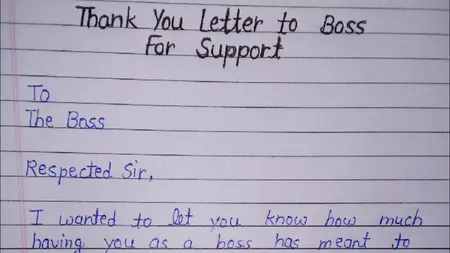 Thank You Letter to Boss
For Support
To
The Boss
Respected Sir,
I wanted to let you know how much
having you as a boss has meant to